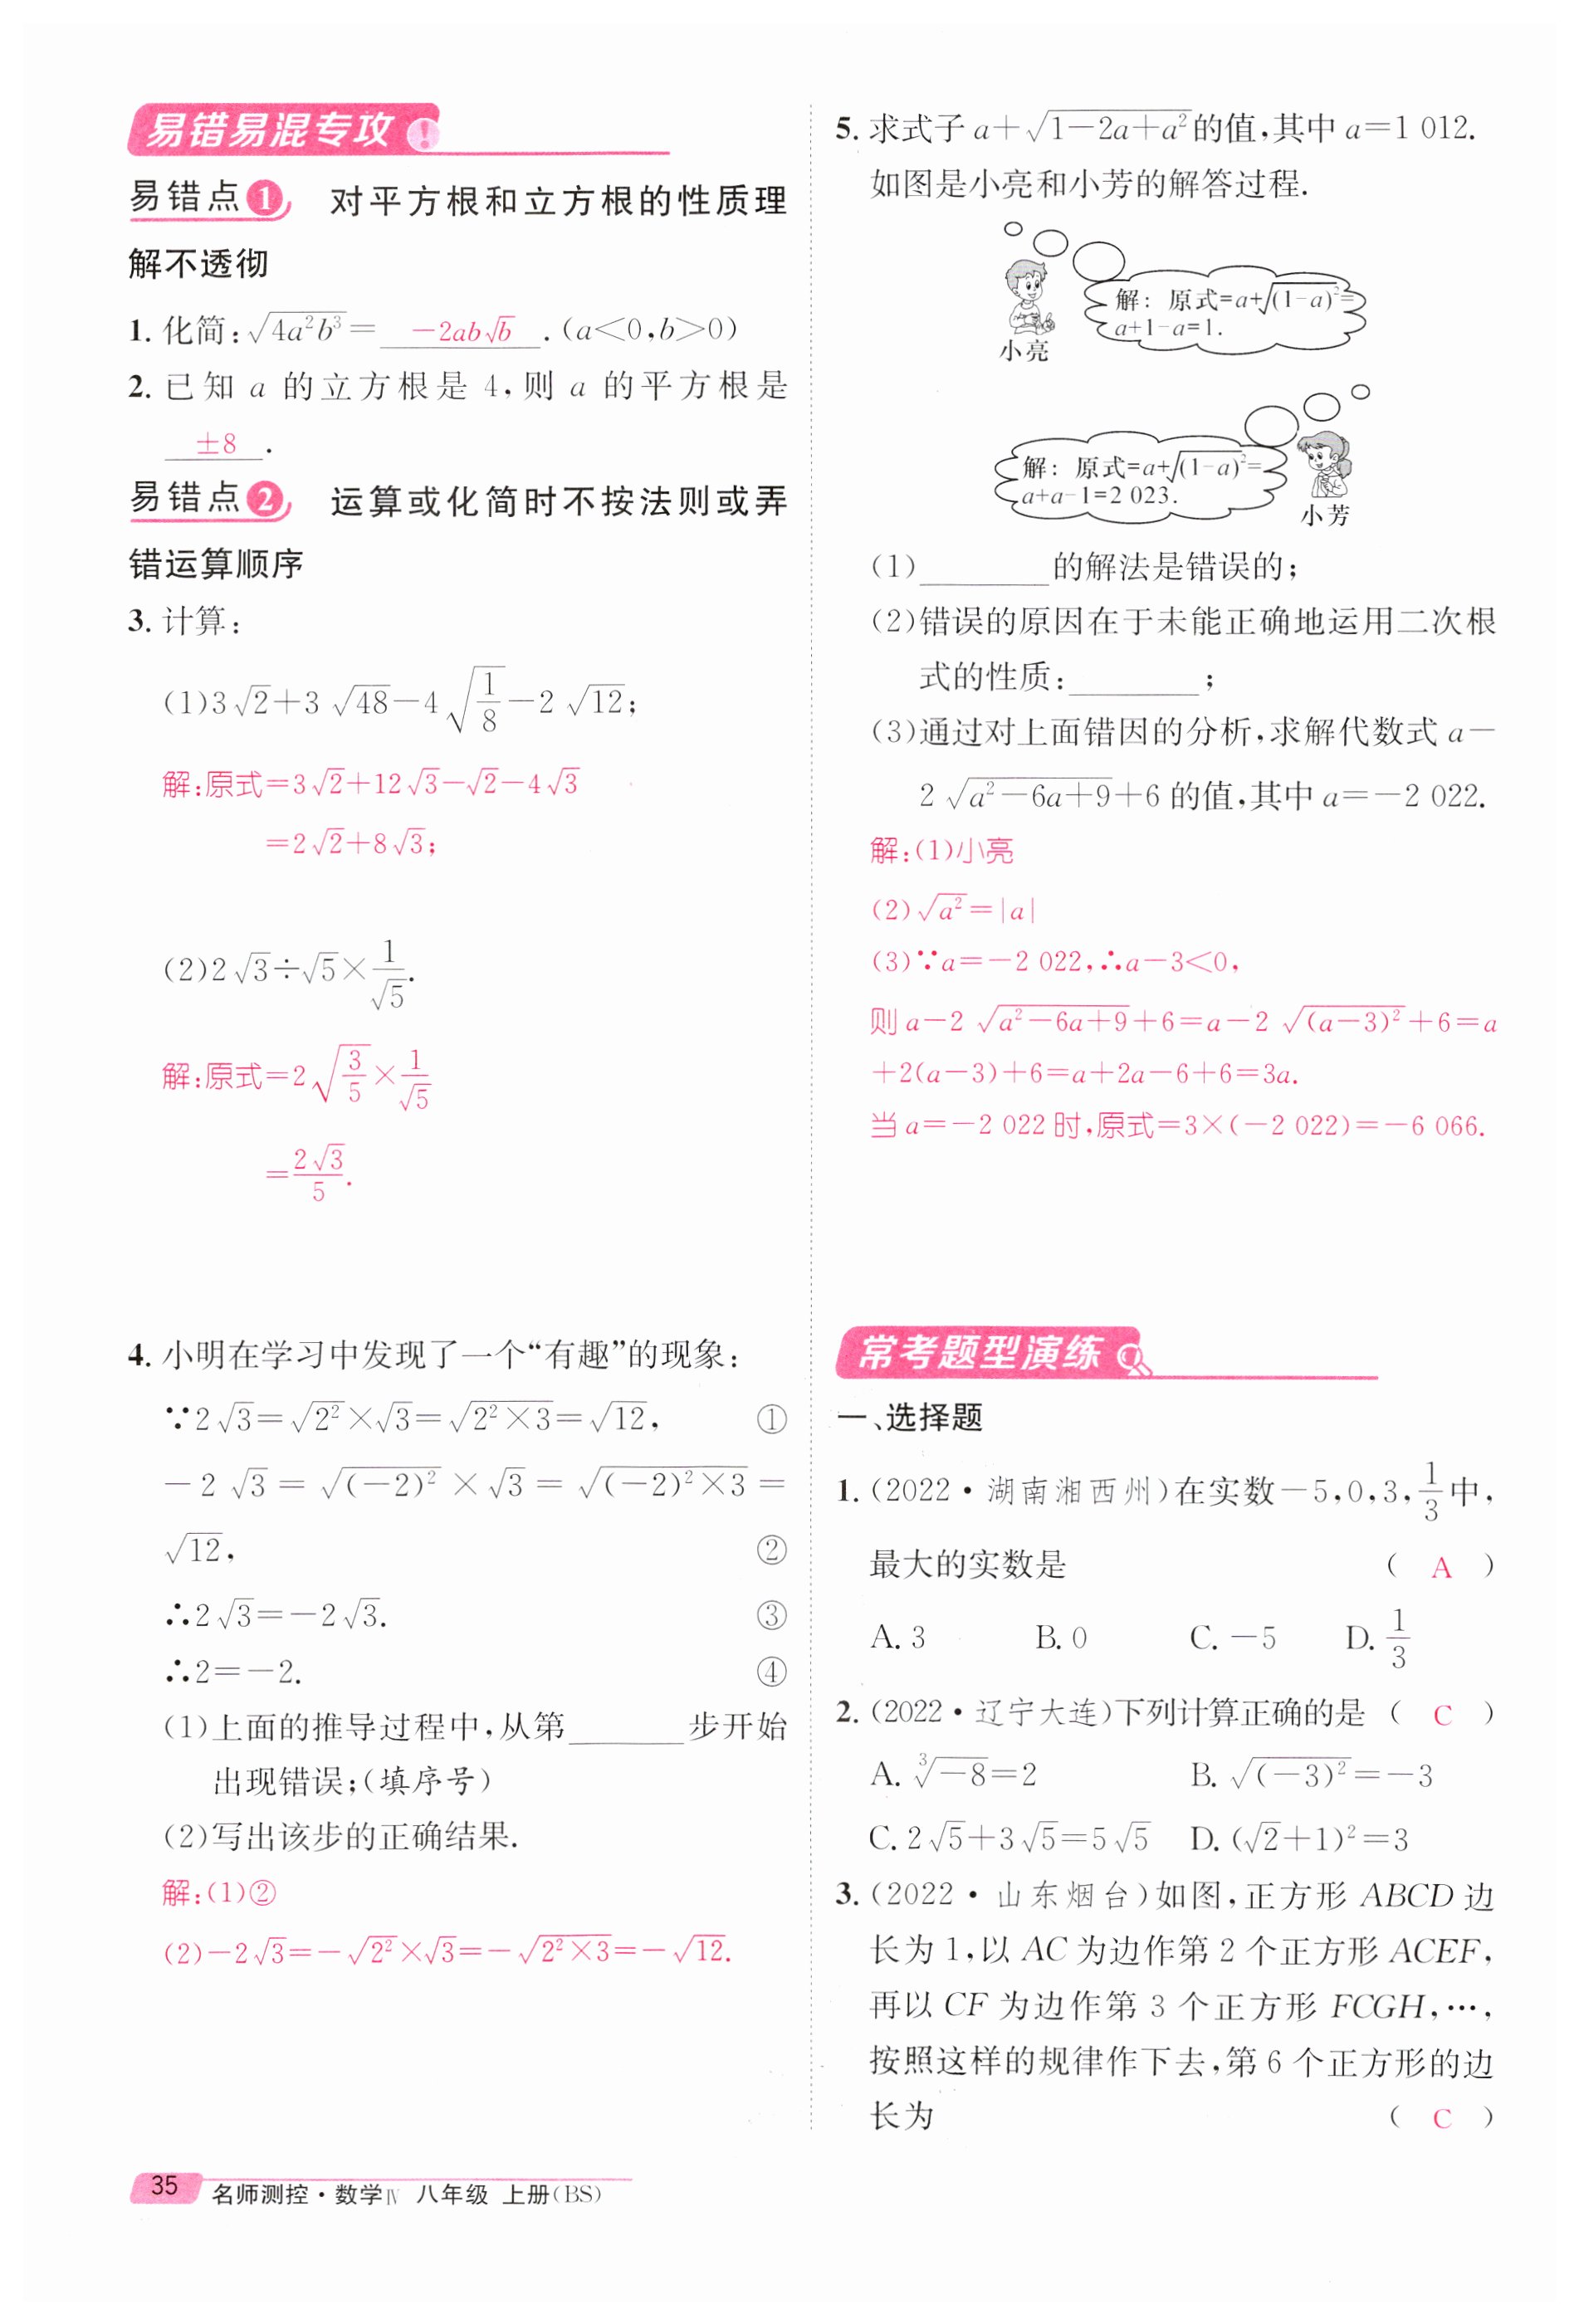 易错易混专攻!
易错点1 对平方根和立方根的性质理
解不透彻
1. 化简:√(4a²b³)= −2ab√b .(a<0,b>0)
2. 已知 a 的立方根是 4,则 a 的平方根是
±8 .
易错点2 运算或化简时不按法则或弄
错运算顺序
3. 计算:
(1)3√2+3√48−4√(1/8)−2√12;
解:原式=3√2+12√3−√2−4√3
=2√2+8√3;
(2)2√3÷√5×1/√5.
解:原式=2√(3/5)×1/√5
=2√3/5.
4. 小明在学习中发现了一个“有趣”的现象:
∵2√3=√(2²)×√3=√(2²×3)=√12, ①
−2√3=√((−2)²)×√3=√((−2)²×3)=
√12, ②
∴2√3=−2√3. ③
∴2=−2. ④
(1)上面的推导过程中,从第______步开始
出现错误;(填序号)
(2)写出该步的正确结果.
解:(1)②
(2)−2√3=−√(2²)×√3=−√(2²×3)=−√12.
35
名师测控·数学Ⅳ 八年级 上册(BS)
5. 求式子 a+√(1−2a+a²)的值,其中 a=1 012.
如图是小亮和小芳的解答过程.
解:原式=a+√((1−a)²)=
a+1−a=1.
小亮
解:原式=a+√((1−a)²)=
a+a−1=2 023.
小芳
(1)______的解法是错误的;
(2)错误的原因在于未能正确地运用二次根
式的性质:______;
(3)通过对上面错因的分析,求解代数式 a−
2√(a²−6a+9)+6 的值,其中 a=−2 022.
解:(1)小亮
(2)√(a²)=|a|
(3)∵a=−2 022,∴a−3<0,
则 a−2√(a²−6a+9)+6=a−2√((a−3)²)+6=a
+2(a−3)+6=a+2a−6+6=3a.
当 a=−2 022 时,原式=3×(−2 022)=−6 066.
常考题型演练
一、选择题
1. (2022·湖南湘西州)在实数−5,0,3,1/3中,
最大的实数是 ( A )
A. 3 B. 0 C. −5 D. 1/3
2. (2022·辽宁大连)下列计算正确的是 ( C )
A. ∛(−8)=2 B. √((−3)²)=−3
C. 2√5+3√5=5√5 D. (√2+1)²=3
3. (2022·山东烟台)如图,正方形 ABCD 边
长为 1,以 AC 为边作第 2 个正方形 ACEF,
再以 CF 为边作第 3 个正方形 FCGH,…,
按照这样的规律作下去,第 6 个正方形的边
长为 ( C )